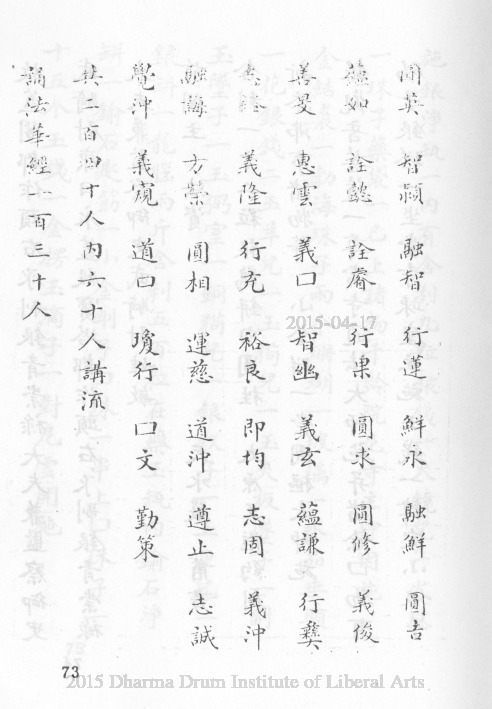 開英 智穎 融智 行蓮 鮮永 融鮮 圓吉
蘊如 詮懿 詮睿 行果 圓求 圓修 義俊
善旻 惠雲 義口 智幽 義玄 蘊謙 行彝
義隆 行充 裕良 即均 志固 義沖
融誨 方榮 圓相 運慈 道沖 遵止 志誠
覺沖 義寬 道口 瓊行 口文 勤策
共二百四十人內六十人講流
誦法華經一百三十人
2015-04-17
73
2015 Dharma Drum Institute of Liberal Arts